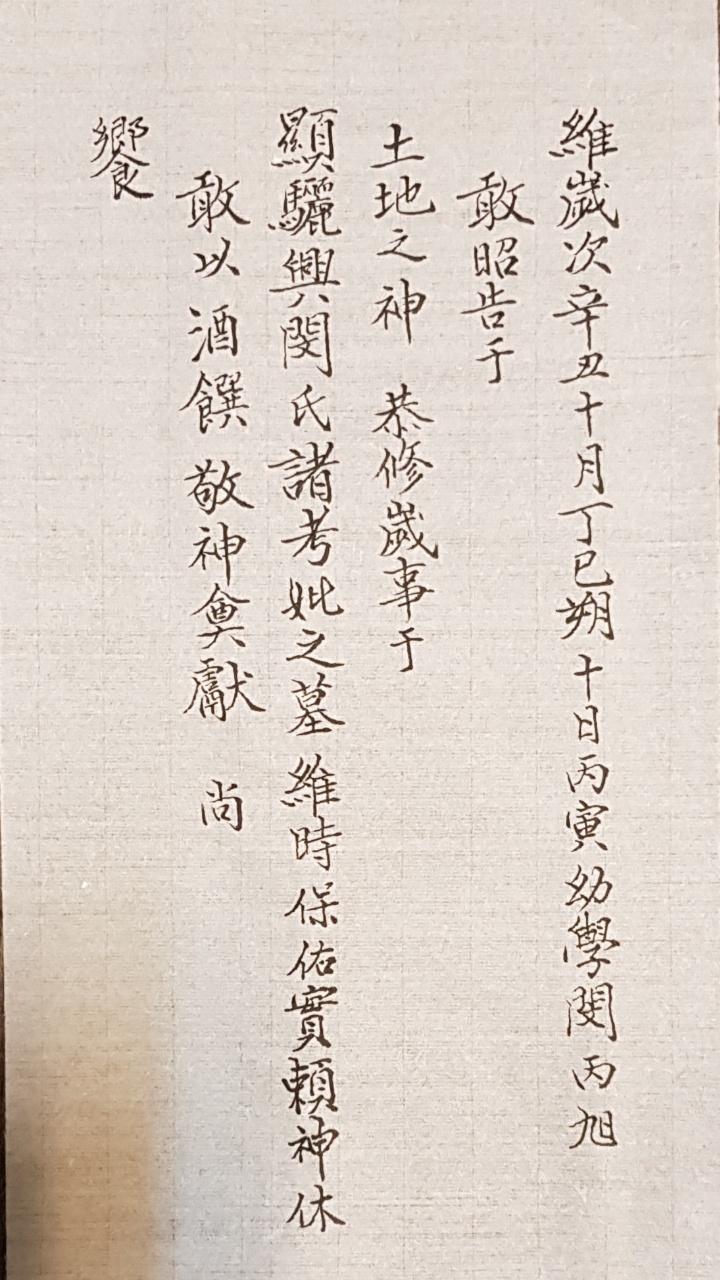 維歲次辛丑十月丁巳朔十日丙寅幼學閔丙旭
敢昭告于
土地之神 恭修歲事于
顯驪興閔氏諸考妣之墓維時保佑實賴神休
敢以酒饌敬神奠獻 尚
饗